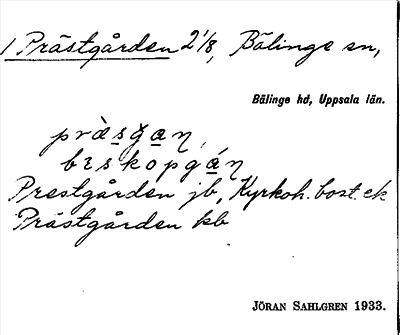 1 Prästgården 2 1/8, Bälinge sn,
Bälinge hd, Uppsala län.
præ̀sğaṇ,
bɪskopgáṇ
Prestgården jb, Kyrkoh. bost. ek
Prästgården kb
JÖRAN SAHLGREN 1933.